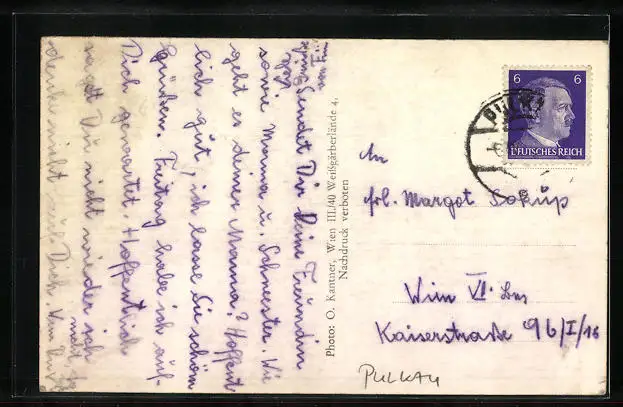 Grüße
Sendet Dir Deine Freundin
sowie Mama u. Schwester. Wie
geht es deiner Mama? Hoffent
lich gut, ich lasse Sie schön
grüßen. Freitag habe ich auf-
Dich gewartet. Hoffentlich
sagst Du nicht wieder ich
denke nicht auf Dich.
Photo: O. Kantner, Wien III./40 Weißgärberlände 4.
Nachdruck verboten
6 6
DEUTSCHES REICH
An
Frl. Margot Sokup
Wien VII. Bez
Kaiserstraße 96/I/16
PULKAU